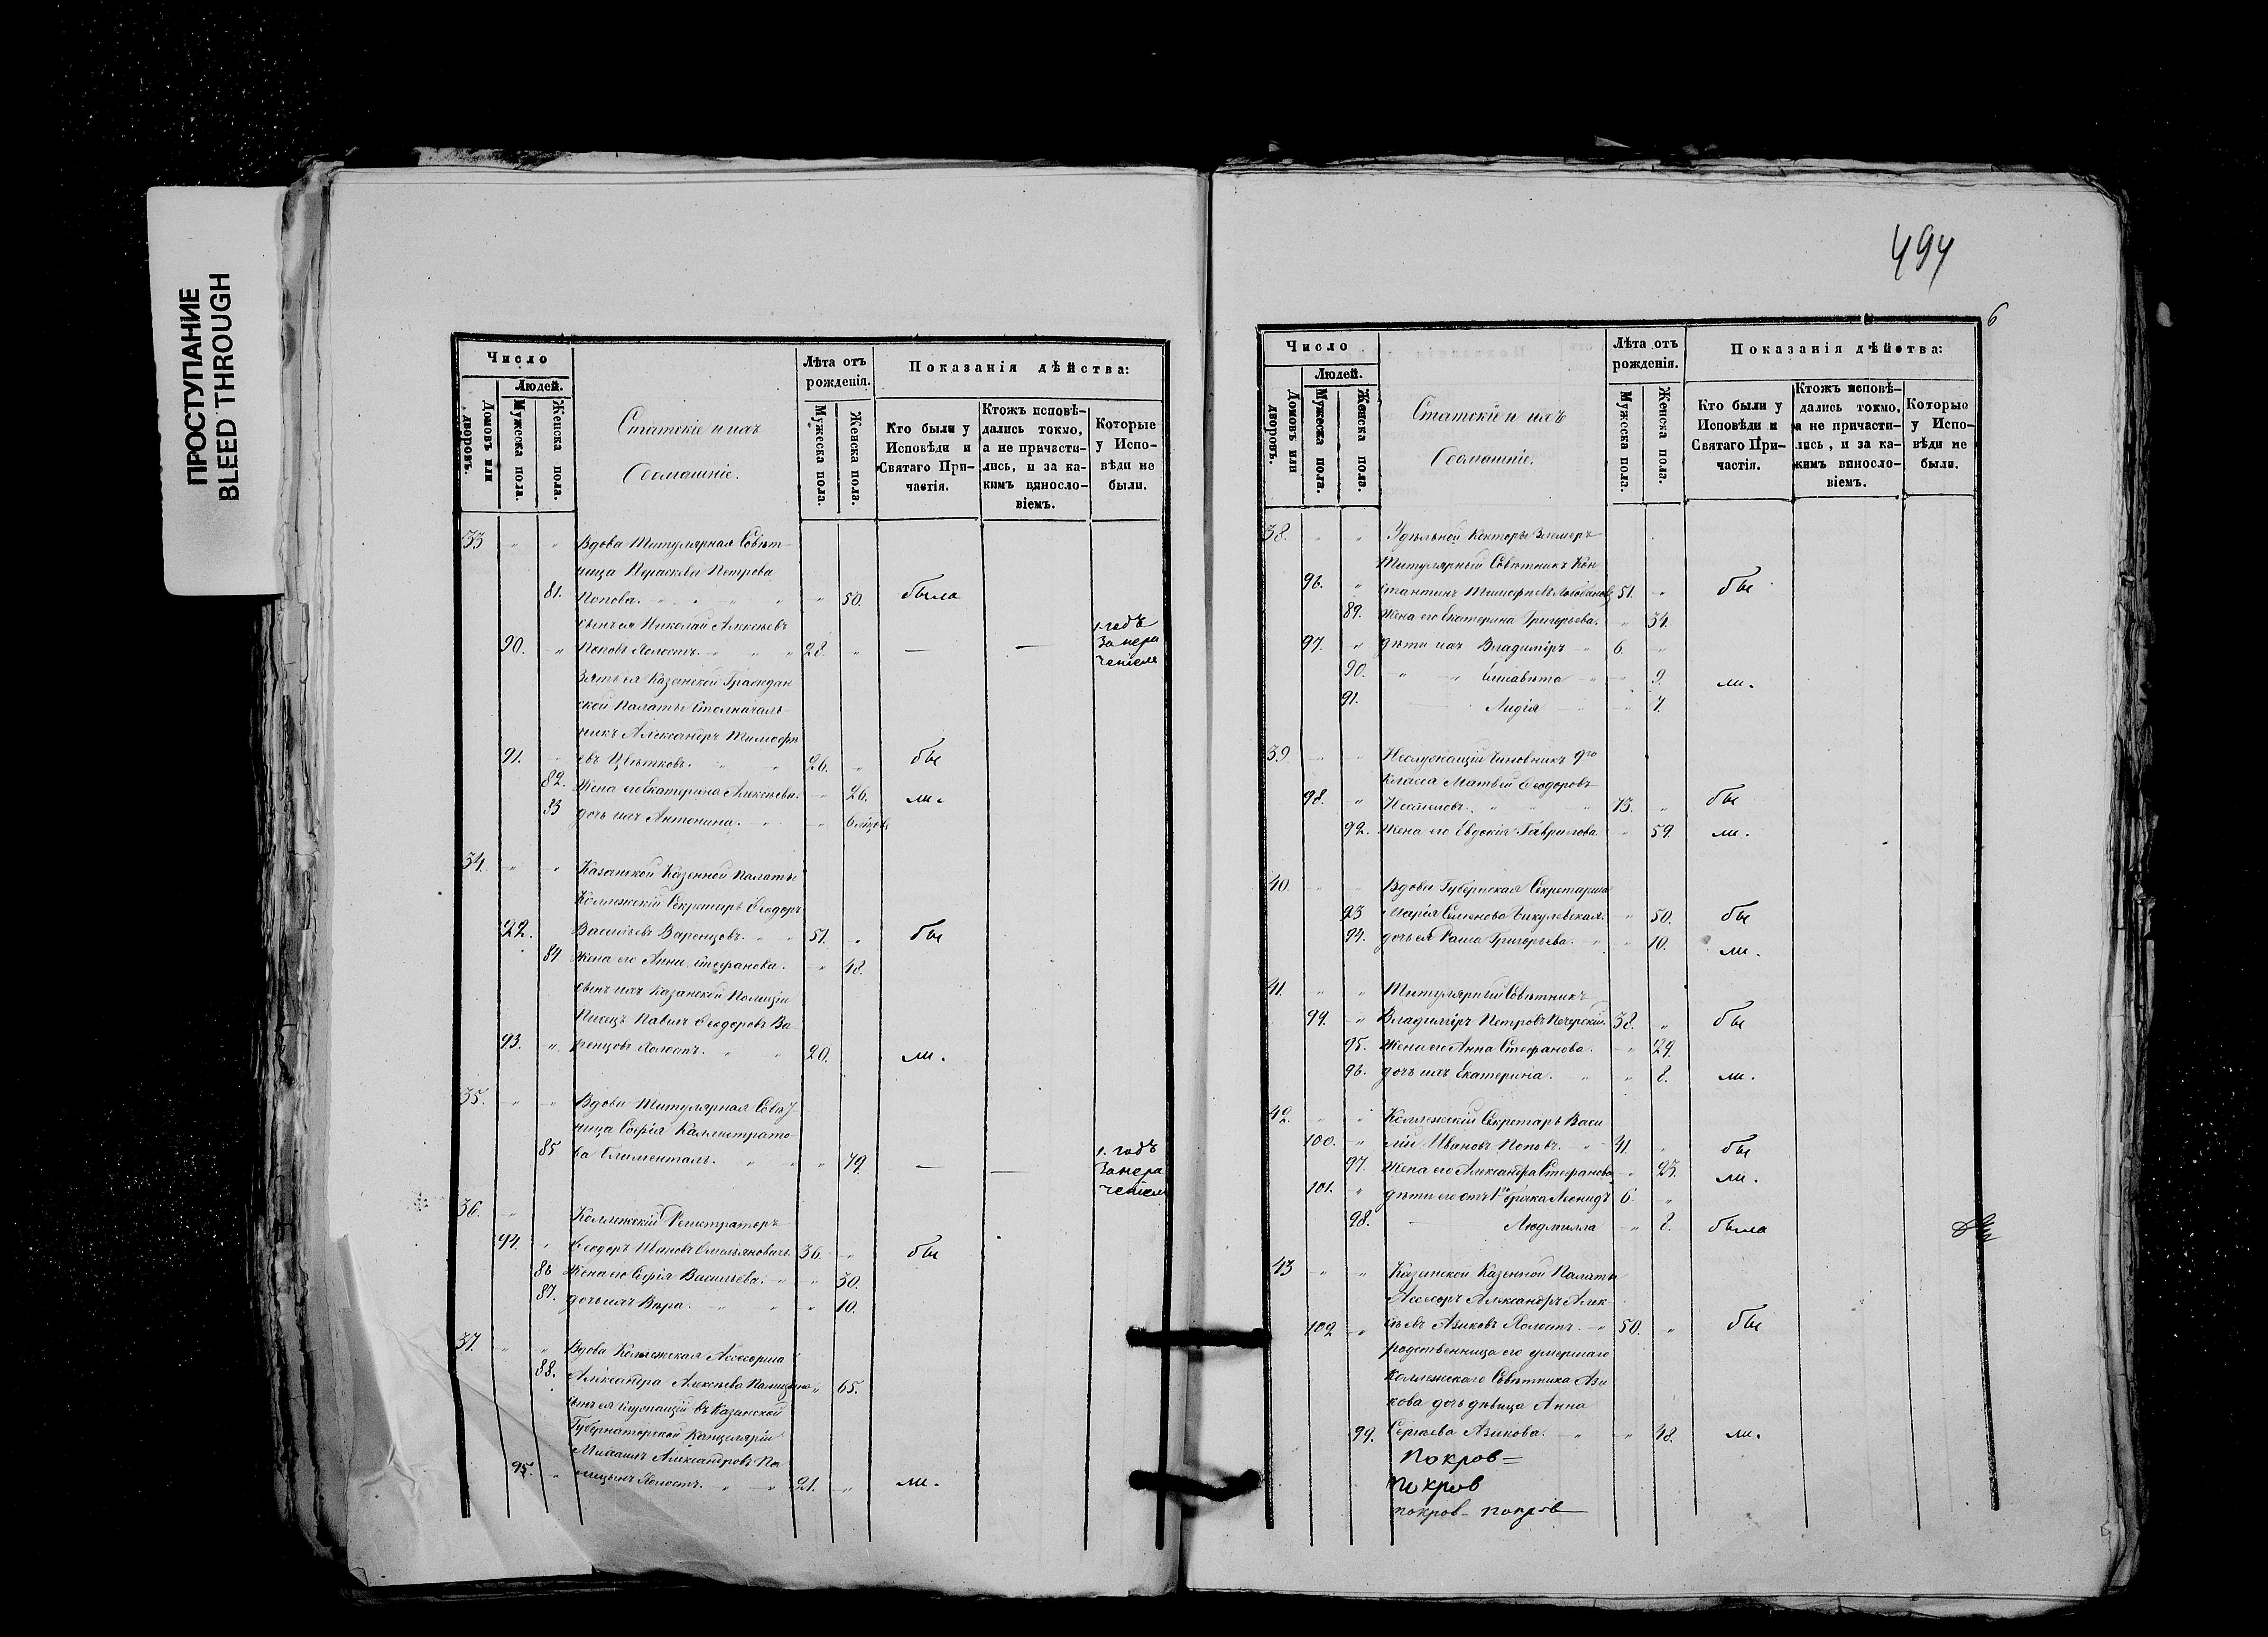 ПРОСТУПАНИЕ
BLEED THROUGH
494
6
Число
Людей.
Домовъ или дворовъ.
Мужеска пола.
Женска пола.
Статскіе и ихъ
домашніе.
Лѣта отъ
рожденія.
Мужеска пола.
Женска пола.
Показанія дѣйства:
Кто были у
Исповѣди и
Святаго При-
частія.
Ктожъ исповѣ-
дались токмо,
а не причасти-
лись, и за ка-
кимъ винносло-
віемъ.
Которые
у Испо-
вѣди не
были.
33 " " Вдова Титулярная Совѣт-
ница Параскева Петрова
81. Попова. " 50. была
сынъ ея Николай Алексѣевъ 1. годъ
90. " Поповъ Холостъ. 28. " — — За нера
чениемъ
Зять ея Казанской Граждан
ской Палаты Столначаль-
никъ Александръ Тимофе
91. " евъ Цвѣтковъ. 26. " бы
82. Жена его Екатерина Алексѣева. " 26. ли.
83 дочь ихъ Антонина. "
34. " " Казанской Казенной Палаты
Коллежскій Секретарь Ѳеодоръ
92. Васильевъ Варенцовъ. 51. " бы
84 Жена его Анна Стефанова. " 48.
сынъ ихъ Казанской Полиціи
Писецъ Павелъ Ѳеодоровъ Ва
93. " ренцовъ Холостъ. 20. ли.
35. " " Вдова Титулярная Совѣт
ница Софія Каллистрато 1. годъ
85 ва " 49. — — За нера
чениемъ
36. " Коллежскій Регистраторъ
94. " Ѳеодоръ Ивановъ Емельяновичъ. 36. " бы
86 Жена его Софія Васильева. " 30.
87. дочь ихъ Вѣра. " 10.
37. " " Вдова Коллежская Ассесорша
88. Александра Алексѣева " 65.
сынъ ея служащій въ Казанской
Губернаторской Канцеляріи
Михаилъ Александровъ Па
95. " лицынъ Холостъ. 21. " ли.
Число
Людей.
Домовъ или дворовъ.
Мужеска пола.
Женска пола.
Статскіе и ихъ
домашніе.
Лѣта отъ
рожденія.
Мужеска пола.
Женска пола.
Показанія дѣйства:
Кто были у
Исповѣди и
Святаго При-
частія.
Ктожъ исповѣ-
дались токмо,
а не причасти-
лись, и за ка-
кимъ винносло-
віемъ.
Которые
у Испо-
вѣди не
были.
38. " " Удѣльной Конторы Землемеръ
Титулярный Совѣтникъ Кон
96. " стантинъ Тимофеевъ 51. " бы
89. Жена его Екатерина Григорьева. " 34.
97. " дѣти ихъ Владиміръ 6. "
90. " " Елисавета 9. ли.
91. Лидія " 7.
39. " " Неслужащій Чиновникъ 9го
класса Матвей Ѳеодоровъ
98. " 73. " бы
92. Жена его Евдокія Гаврилова. " 59. ли.
40. Вдова Губернская Секретарша
93 Марія Семенова " 50. бы
94. дочь ея Раиса Григорьева. " 10. ли.
41. " " Титулярный Совѣтникъ
99. " Владиміръ Петровъ Печерскій. 38. " бы
95. Жена его Анна Стефанова. " 29.
96. дочь ихъ Екатерина. " 8. ли.
42. " " Коллежскій Секретарь Васи
100. " лій Ивановъ Поповъ. 41. " бы
97. Жена его Александра Стефанова " 23. ли.
101. " дѣти его отъ 1го брака Леонидъ 6. "
98. Людмилла " 8. была
43 " " Казанской Казенной Палаты
Асессоръ Александръ Алек-
102 " сѣевъ Азиковъ Холостъ. 50. " бы
родственница его умершаго
Коллежскаго Совѣтника Ази
кова дочь дѣвица Анна
99. Сергѣева Азикова. " 48. ли.
Покров=
Покров
покров- покров